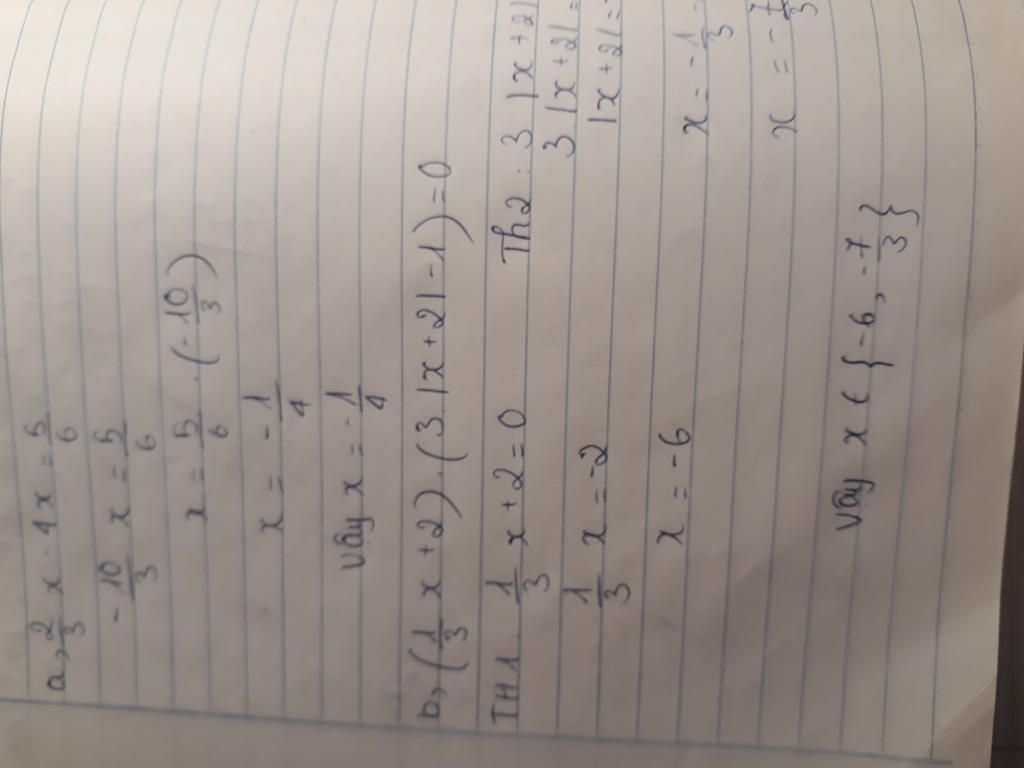 a, 2/3 x - 4x = 5/6
- 10/3 x = 5/6
x = 5/6 . (- 10/3)
x = - 1/4
Vậy x = - 1/4
b, (1/3 x + 2) . (3 . |x + 2| - 1) = 0
TH1 . 1/3 x + 2 = 0
Th2 : 3 |x + 2|
1/3 x = -2
3 |x + 2| =
|x + 2| =
x = -6
x = - 1/3 -
x = - 7/3
Vậy x ∈ { -6, -7/3 }